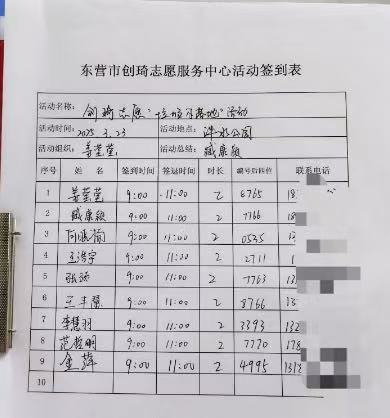 东营市创琦志愿服务中心活动签到表
活动名称: 创琦志愿"垃圾不落地"活动
活动时间: 2025.3.23 活动地点: 洋水公园
活动组织: 姜莹莹 活动总结: 臧康毅
序号 姓 名 签到时间 签退时间 时长 编号后四位 联系电话
1 姜莹莹 9:00 11:00 2 6765 18
2 臧康毅 9:00 11:00 2 7766 18
3 9:00 11:00 2 0535 13
4 王浩宇 9:00 11:00 2 2711 1
5 张硕 9:00 11:00 2 7763 13
6 9:00 11:00 2 8766 13
7 李慧羽 9:00 11:00 2 3393 132
8 范哲明 9:00 11:00 2 7770 178
9 金萍 9:00 11:00 2 4995
10